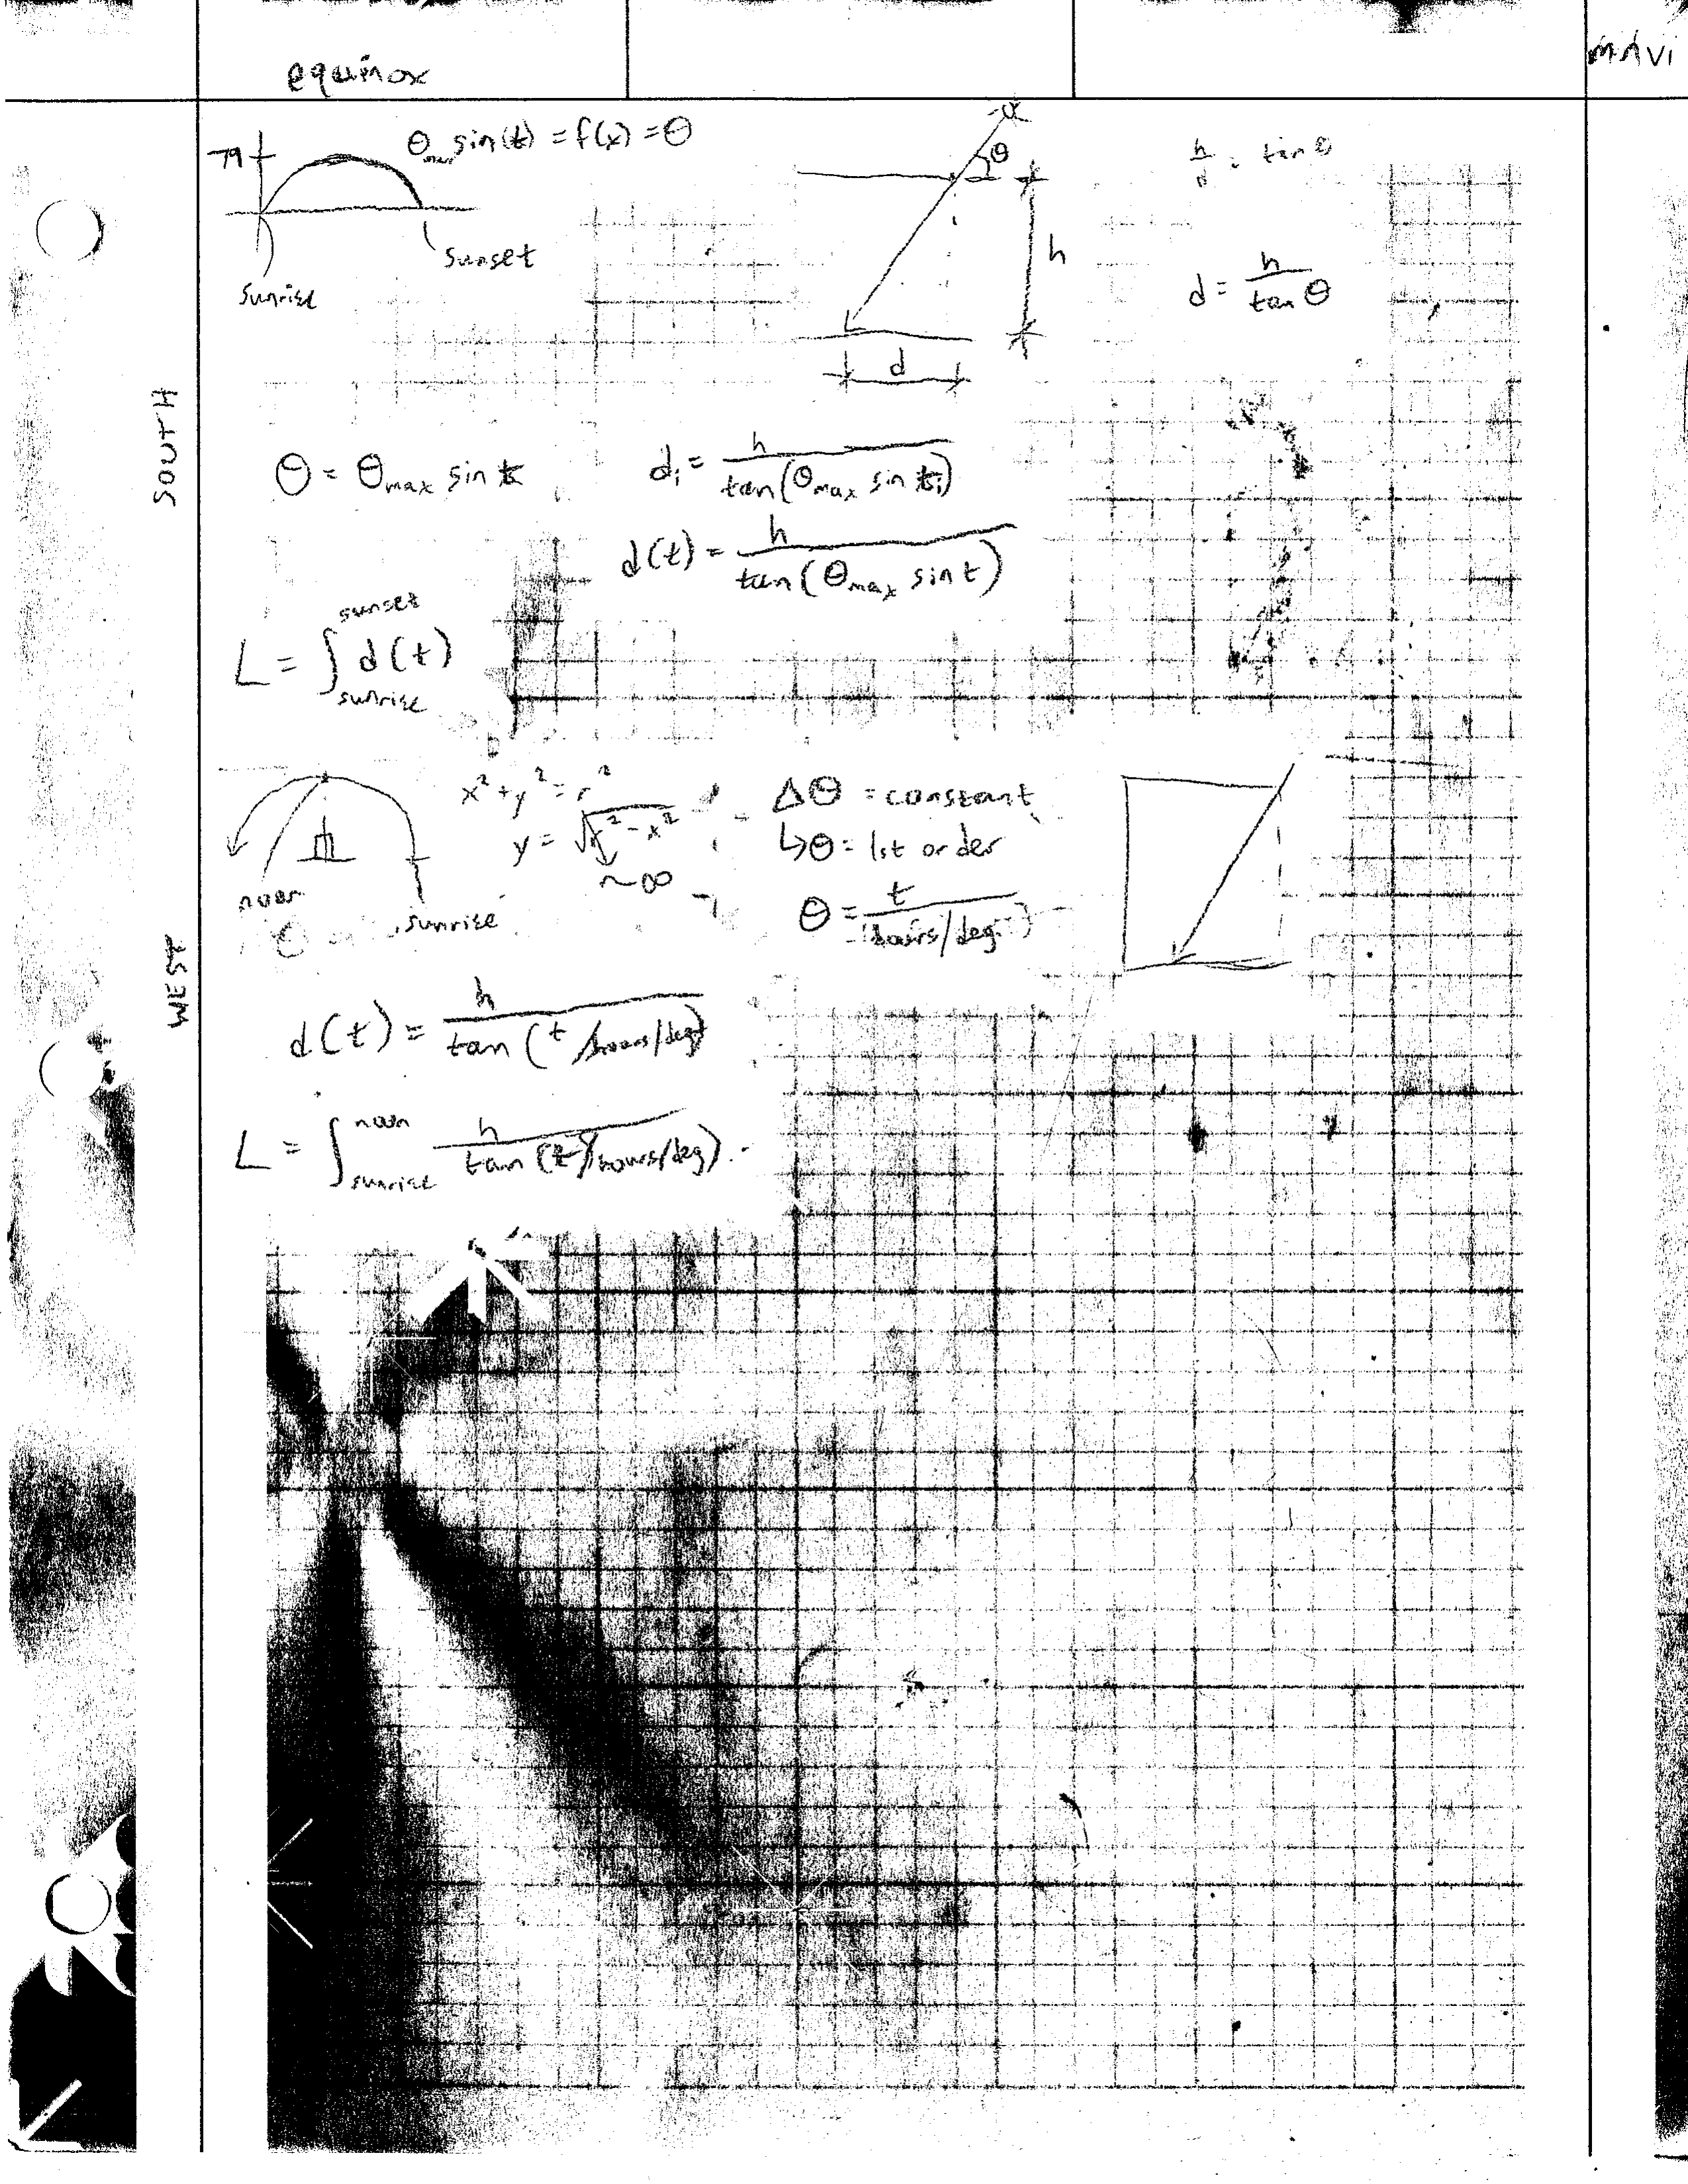 equinox
79
Θmax sin(t) = f(x) = Θ
sunrise
sunset
Θ
h
d
h/d = tan Θ
d = h / tan Θ
SOUTH
Θ = Θmax sin t
di = h / tan(Θmax sin ti)
d(t) = h / tan(Θmax sin t)
L = ∫ sunrise sunset d(t)
WEST
noon
sunrise
x² + y² = r²
y = √r² - x²
~∞
ΔΘ = constant
↳Θ = 1st order
Θ = t / (hours/deg.)
d(t) = h / tan(t/hours/deg)
L = ∫ sunrise noon h / tan(t/hours/deg)